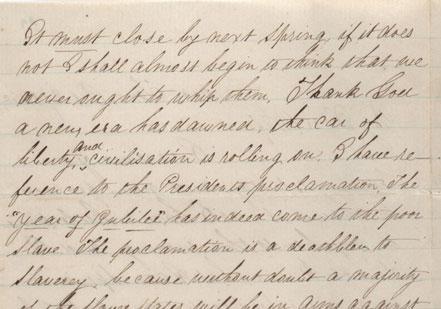 It must close by next spring, if it does
not I shall almost begin to think that we
never ought to whip them. Thank God
a new era has dawned, the car of
liberty, and civilisation is rolling on. I have re-
ference to the Presidents proclamation. The
"Year of Jubilee" has indeed come to the poor
Slave. The proclamation is a deathblow to
Slaverey, because without doubt a majority
of the slave states will be in arms against